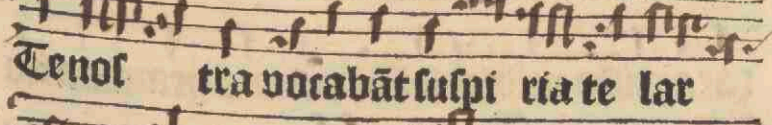 Te nos tra vocabāt suspi ria te lar